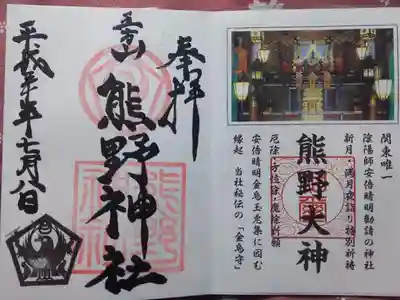 関東唯一
陰陽師安倍晴明勧請の神社
新月・満月夜詣り特別祈祷
熊野大神
厄除・方位除・魔除祈願
安倍晴明金烏玉兎集に因む
縁起 当社秘伝の「金烏守」
奉拝
五方山 熊野神社
熊野神社
平成三十年七月八日